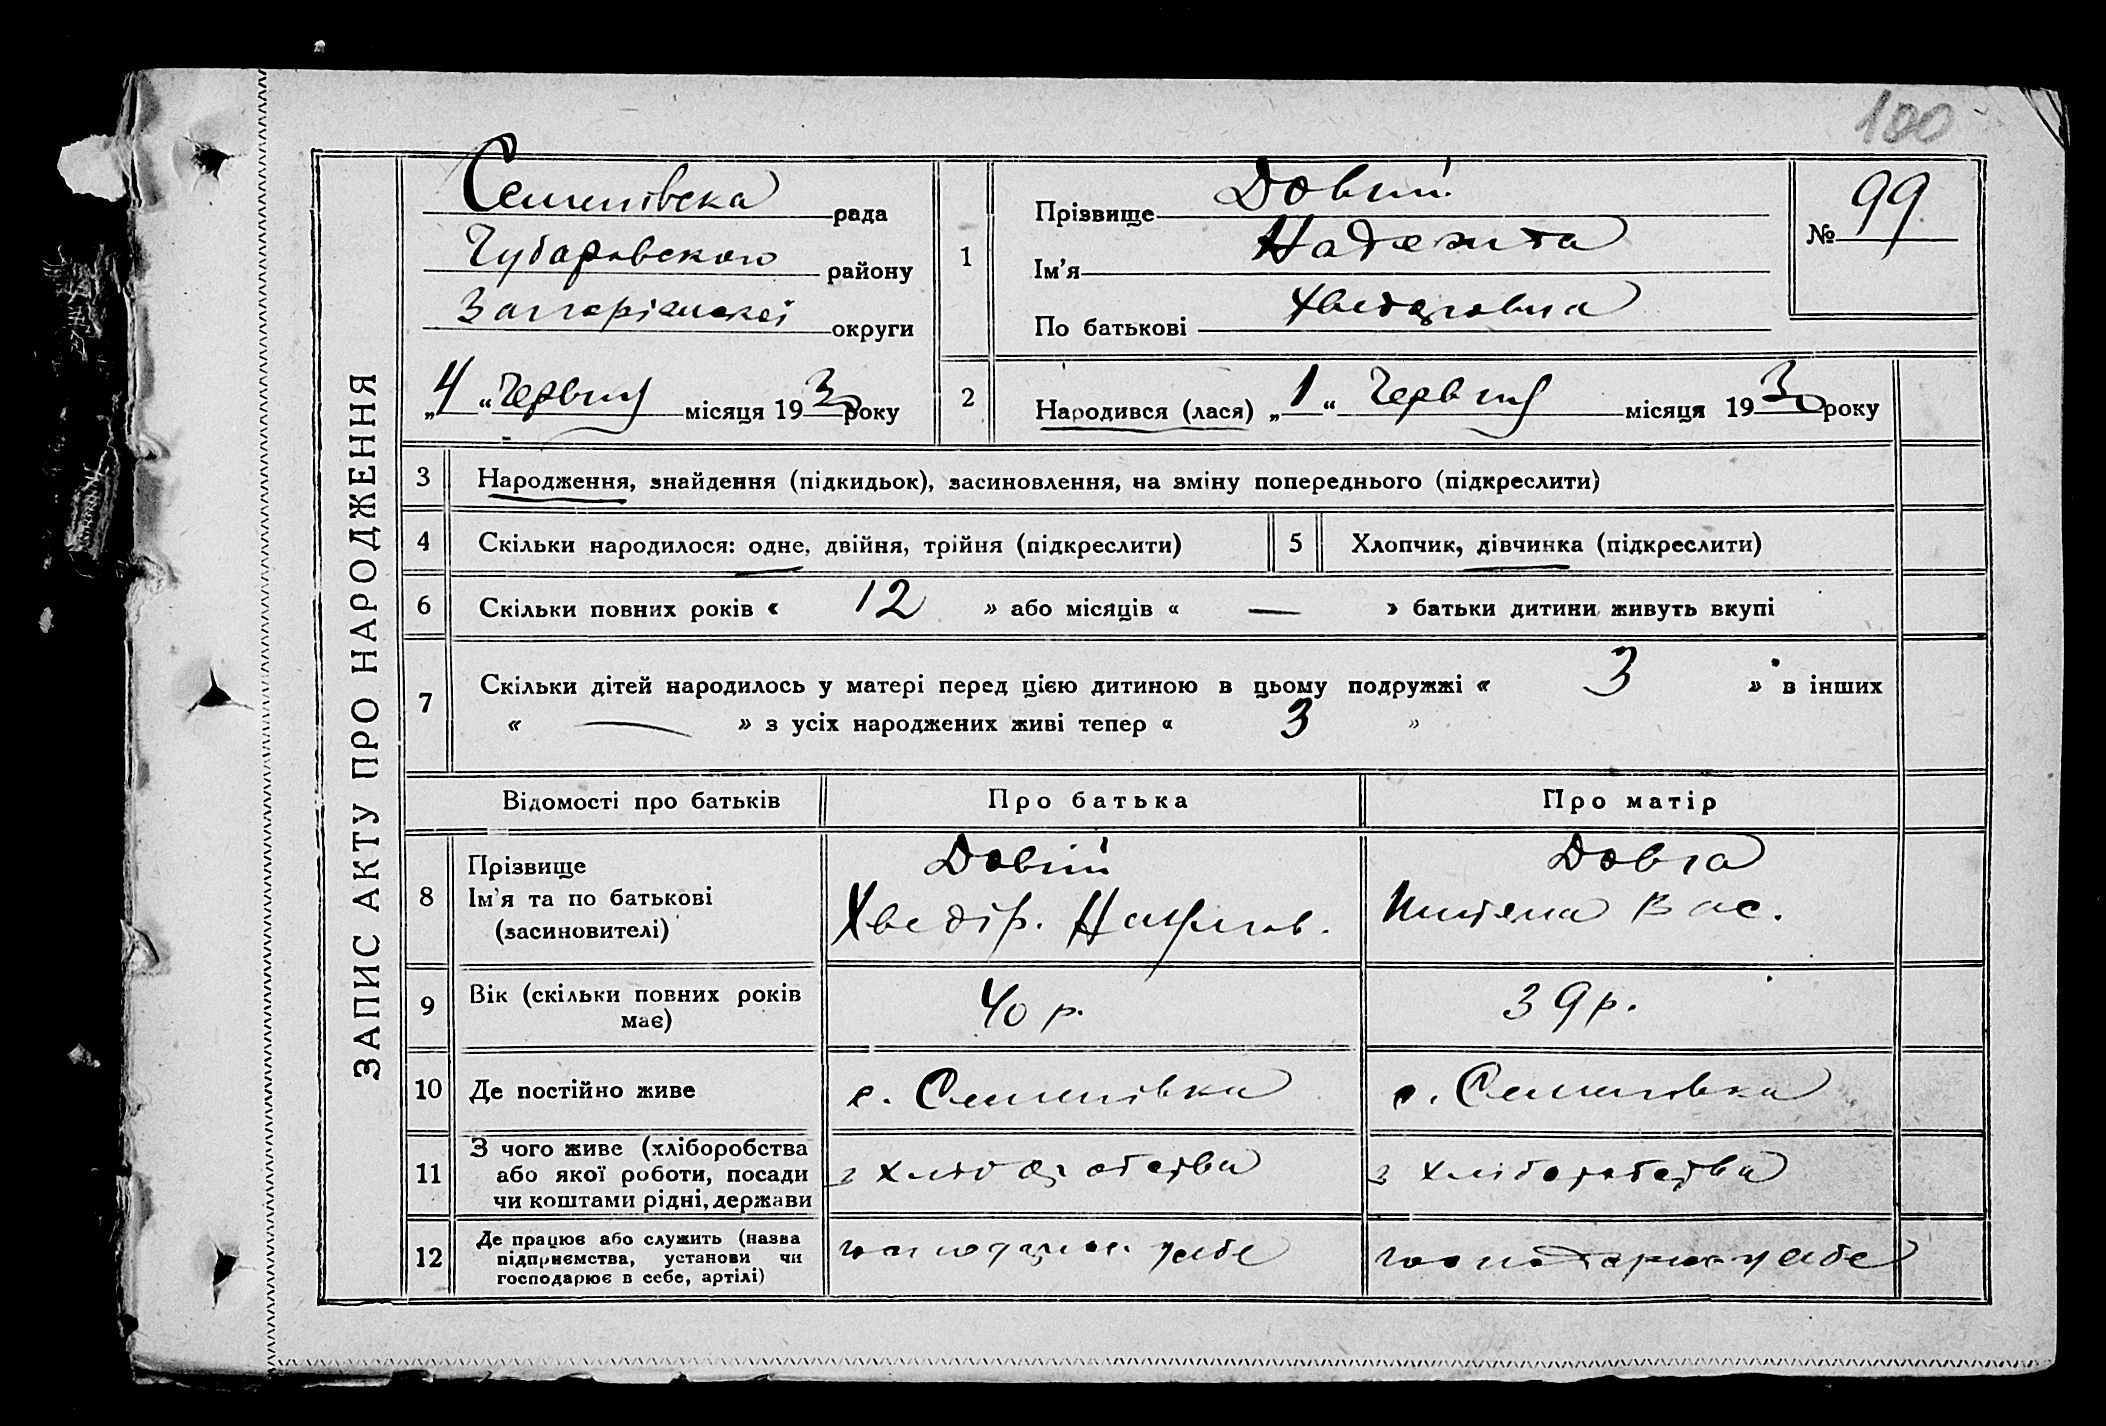 100
ЗАПИС АКТУ ПРО НАРОДЖЕННЯ
Семенівска рада
Чубарівского району
Запорізької округи
„4“ Червня місяця 1930 року
1
Прізвище Довгий
Ім'я Надежта
По батькові Хведоровна
№ 99
2
Народився (лася) „1“ Червня місяця 1930 року
3 Народження, знайдення (підкидьок), засиновлення, на зміну попереднього (підкреслити)
4 Скільки народилося: одне, двійня, трійня (підкреслити)
5 Хлопчик, дівчинка (підкреслити)
6 Скільки повних років « 12 » або місяців « — » батьки дитини живуть вкупі
7 Скільки дітей народилось у матері перед цією дитиною в цьому подружжі « 3 » в інших
« — » з усіх народжених живі тепер « 3 »
Відомості про батьків Про батька Про матір
8 Прізвище
Ім'я та по батькові
(засиновителі)
Довгий
Хведір.
Довга
Вас.
9 Вік (скільки повних років
має)
40 р.
39 р.
10 Де постійно живе
с. Семенівка
с. Семенівка
11 З чого живе (хліборобства
або якої роботи, посади
чи коштами рідні, держави
з хліборобства
з хліборобства
12 Де працює або служить (назва
підприємства, установи чи
господарює в себе, артілі)
господарює у себе
господарює у себе